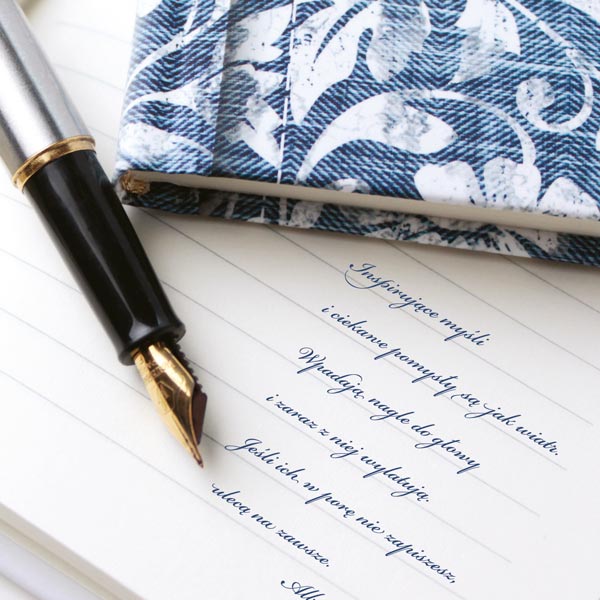 Inspirujące myśli
i ciekawe pomysły są jak wiatr.
Wpadają nagle do głowy
i zaraz z niej wylatują.
Jeśli ich w porę nie zapiszesz,
ulecą na zawsze.
Alb